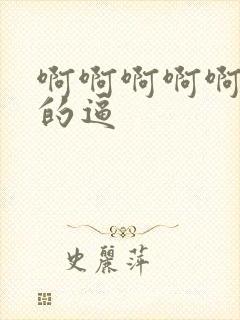 啊啊啊啊啊
的逼
史丽萍